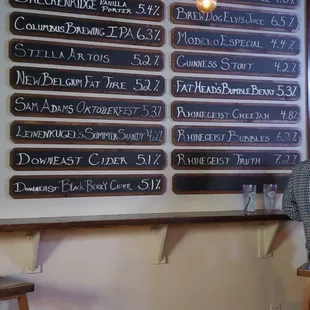 Breckenridge Vanilla Porter 5.4%
Columbus Brewing IPA 6.3%
Stella Artois 5.2%
New Belgium Fat Tire 5.2%
Sam Adams Oktoberfest 5.3%
Leinenkugel's Summer Shandy 4.2%
Downeast Cider 5.1%
Downeast Black Berry Cider 5.1%
BrewDog Elvis Juice 6.5%
Modelo Especial 4.4%
Guinness Stout 4.2%
Fat Heads Bumble Berry 5.3%
Rhinegeist Cheetah 4.8%
Rhinegeist Bubbles 6.2%
Rhinegeist Truth 7.2%